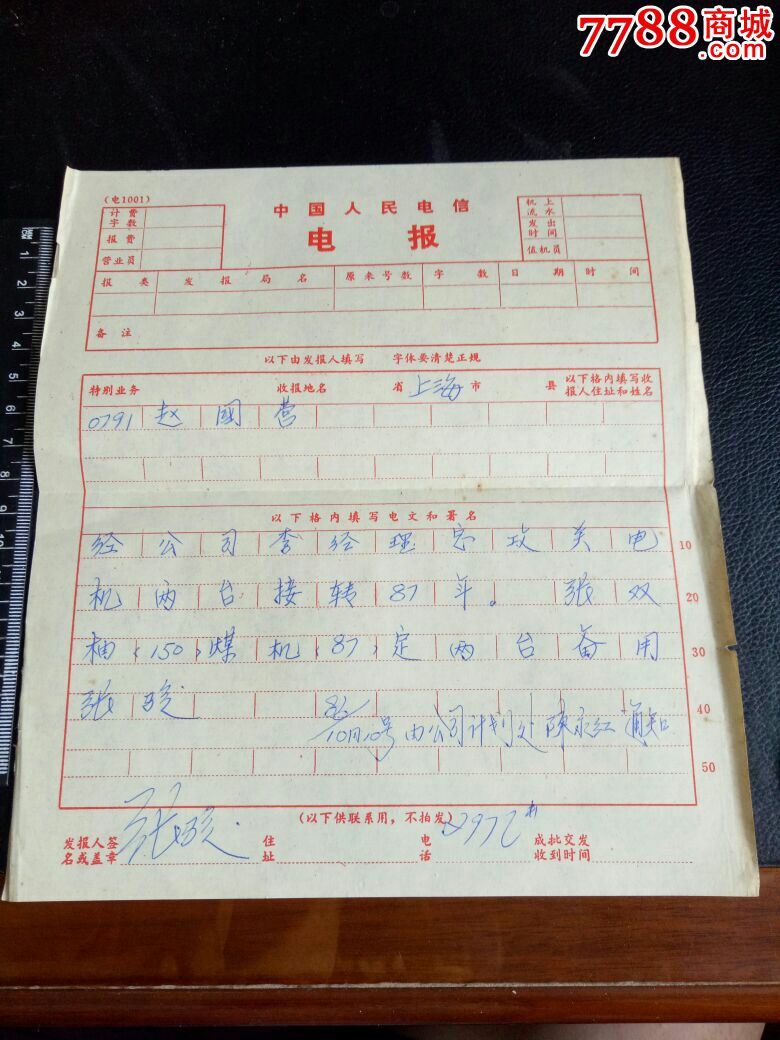 7788商城
.com
(电1001)
中国人民电信
电报
计费字数
报费
营业员
机上流水
发出时间
值机员
报类 发报局名 原来号数 字数 日期 时间
备注
以下由发报人填写 字体要清楚正规
特别业务 收报地名 省 上海 市 县 以下格内填写收报人住址和姓名
0791 赵国营
以下格内填写电文和署名
经公司李经理 攻关电 10
机两台接转87年。张双 20
柚(150)煤机(87)定两台备用 30
张骏 40
86/10月10号由公司计划处陈永红通知
50
(以下供联系用,不拍发)
发报人签名或盖章 张骏 住址 电话 成批交发收到时间